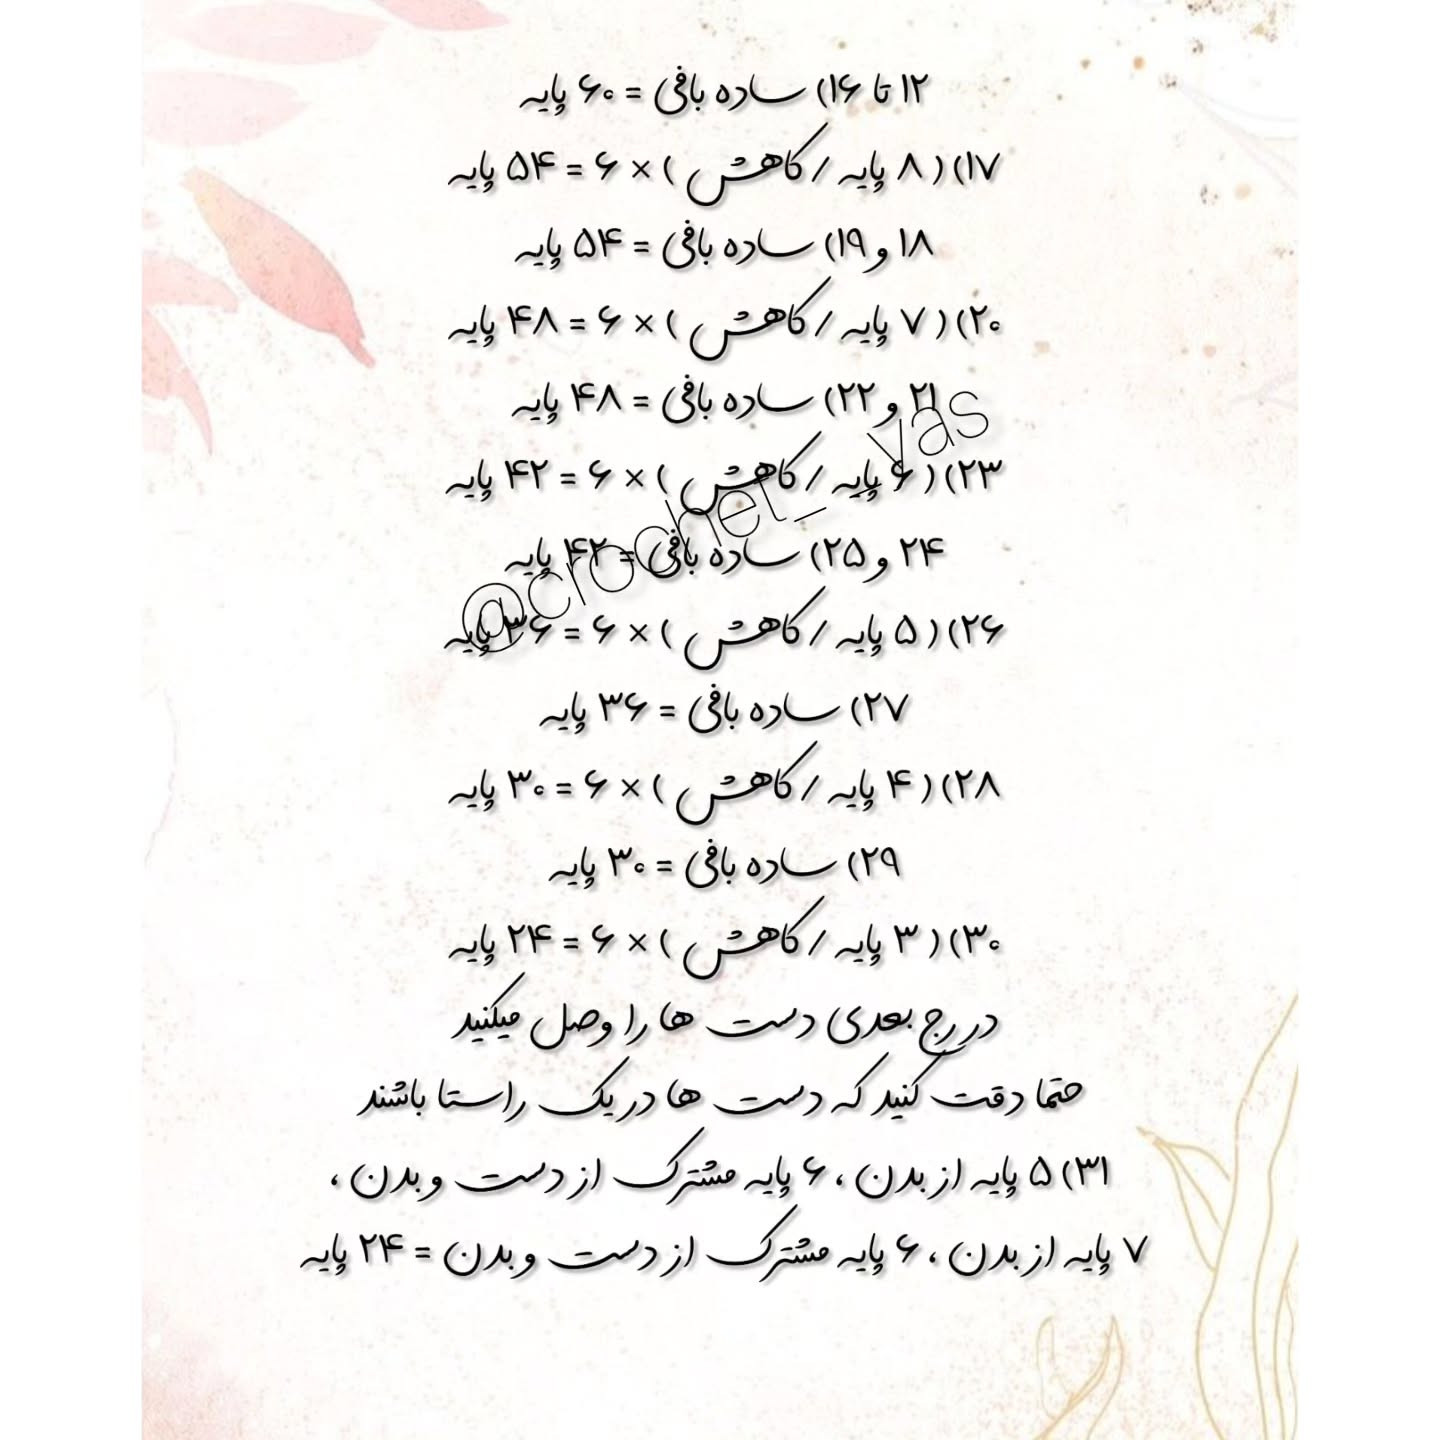 ۱۲ تا ۱۶) ساده بافی = ۶۰ پایه
۱۷) ( ۸ پایه / کاهش ) × ۶ = ۵۴ پایه
۱۸ و ۱۹) ساده بافی = ۵۴ پایه
۲۰) ( ۷ پایه / کاهش ) × ۶ = ۴۸ پایه
۲۱ و ۲۲) ساده بافی = ۴۸ پایه
۲۳) ( ۶ پایه / کاهش ) × ۶ = ۴۲ پایه
۲۴ و ۲۵) ساده بافی = ۴۲ پایه
۲۶) ( ۵ پایه / کاهش ) × ۶ = ۳۶ پایه
۲۷) ساده بافی = ۳۶ پایه
۲۸) ( ۴ پایه / کاهش ) × ۶ = ۳۰ پایه
۲۹) ساده بافی = ۳۰ پایه
۳۰) ( ۳ پایه / کاهش ) × ۶ = ۲۴ پایه
در رج بعدی دست ها را وصل میکنید
حتما دقت کنید که دست ها در یک راستا باشند
۳۱) ۵ پایه از بدن ، ۶ پایه مشترک از دست و بدن ،
۷ پایه از بدن ، ۶ پایه مشترک از دست و بدن = ۲۴ پایه
@crochet__yas